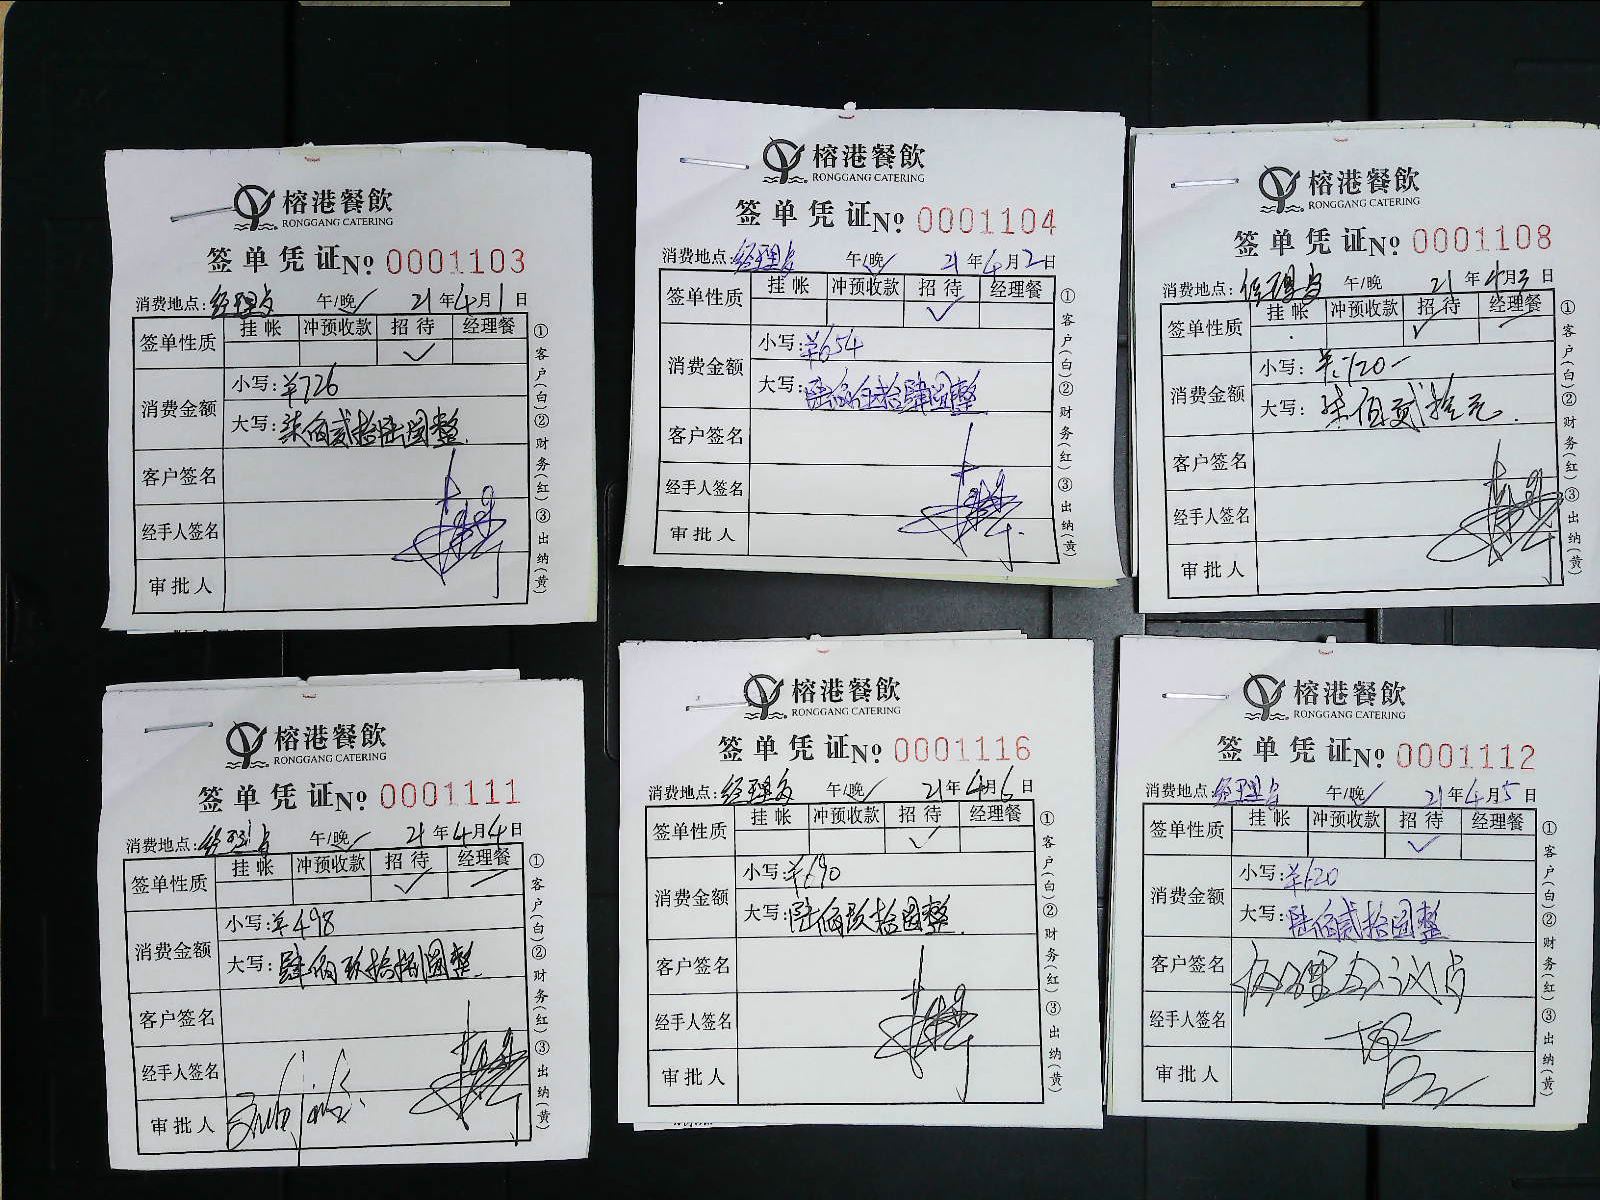 榕港餐飲
RONGGANG CATERING
签单凭证 No 0001103
消费地点:经理房 午/晚✓ 21年4月1日
签单性质 挂帐 冲预收款 招待 经理餐
✓
消费金额 小写:¥726
大写:柒佰贰拾陆圆整
客户签名
经手人签名
审批人
①客户(白)②财务(红)③出纳(黄)
榕港餐飲
RONGGANG CATERING
签单凭证 No 0001104
消费地点:经理房 午/晚✓ 21年4月2日
签单性质 挂帐 冲预收款 招待 经理餐
✓
消费金额 小写:¥654
大写:陆佰伍拾肆圆整
客户签名
经手人签名
审批人
①客户(白)②财务(红)③出纳(黄)
榕港餐飲
RONGGANG CATERING
签单凭证 No 0001108
消费地点:经理房 午/晚 21年4月3日
签单性质 挂帐 冲预收款 招待 经理餐
✓
消费金额 小写:¥:720-
大写:柒佰贰拾元.
客户签名
经手人签名
审批人
①客户(白)②财务(红)③出纳(黄)
榕港餐飲
RONGGANG CATERING
签单凭证 No 0001111
消费地点:经理房 午/晚✓ 21年4月4日
签单性质 挂帐 冲预收款 招待 经理餐
✓
消费金额 小写:¥498
大写:肆佰玖拾捌圆整
客户签名
经手人签名
审批人
①客户(白)②财务(红)③出纳(黄)
榕港餐飲
RONGGANG CATERING
签单凭证 No 0001116
消费地点:经理房 午/晚✓ 21年4月6日
签单性质 挂帐 冲预收款 招待 经理餐
✓
消费金额 小写:¥690
大写:陆佰玖拾圆整
客户签名
经手人签名
审批人
①客户(白)②财务(红)③出纳(黄)
榕港餐飲
RONGGANG CATERING
签单凭证 No 0001112
消费地点:经理房 午/晚✓ 21年4月5日
签单性质 挂帐 冲预收款 招待 经理餐
✓
消费金额 小写:¥620
大写:陆佰贰拾圆整
客户签名
经手人签名
审批人
①客户(白)②财务(红)③出纳(黄)